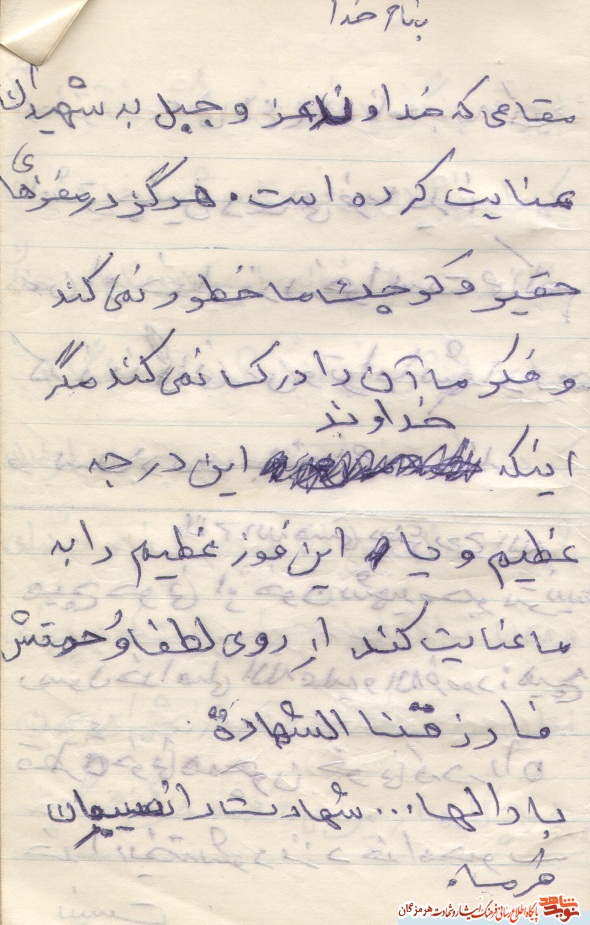 بنام خدا
مقامی که خداوند عز و جل به شهیدان
عنایت کرده است. هرگز در مغزهای
حقیر و کوچک ما خطور نمی کند
و فکر ما آن را درک نمی کند مگر
خداوند
اینکه این درجه
عظیم و یا این فوز عظیم را به
ما عنایت کند از روی لطف و رحمتش
فارزقنا الشهادة
بارالها... شهادت را نصیبمان
فرما.
نوید شاهد
پایگاه اطلاع رسانی فرهنگ ایثار و شهادت هرمزگان